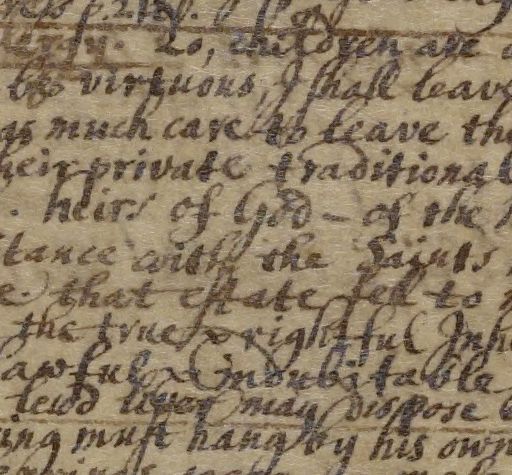 p. 218.
Lo, children are
be virtuous, I shall leave
as much care to leave the
heir private traditional
. heirs of God - of the
itance with the Saints
e. that estate fell to
the true & rightful Inh
awful & indubitable
lewd liver may dispose
ing must hang by his own